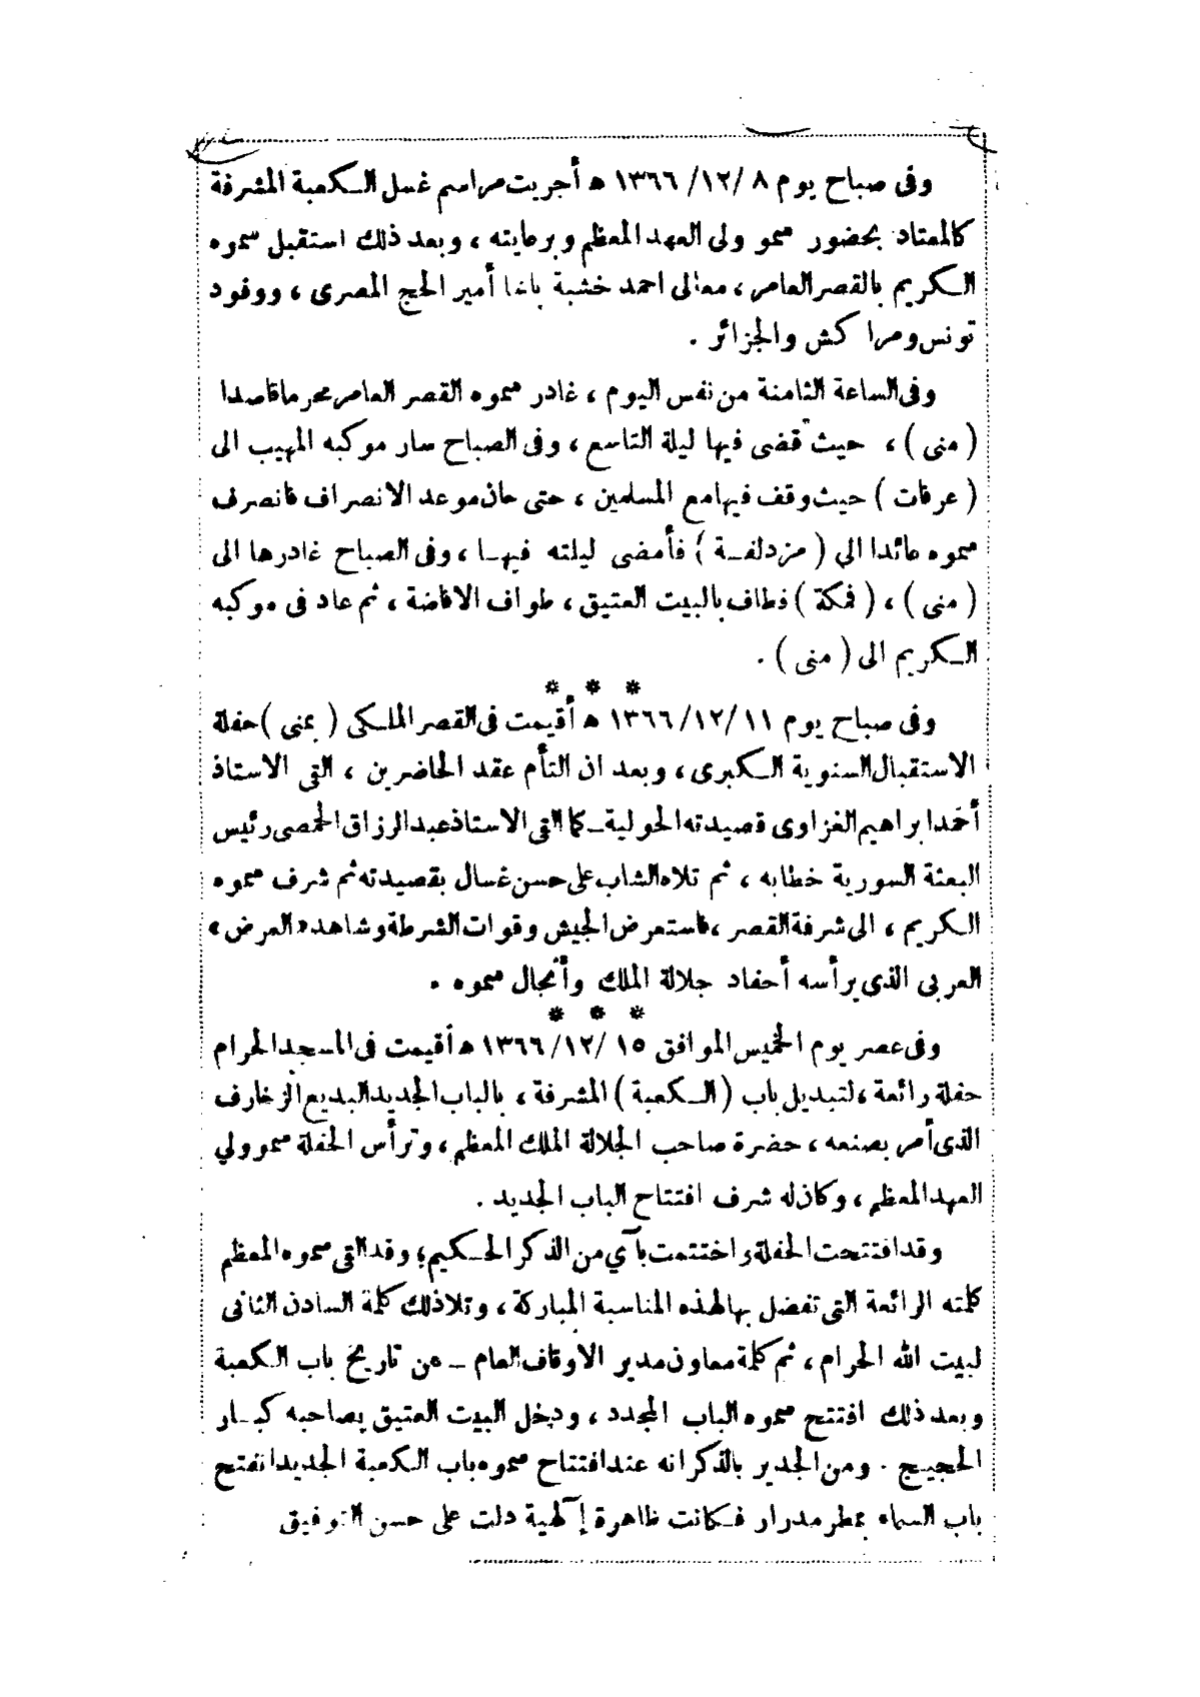 وفى صباح يوم ٨ /١٢/ ١٣٦٦ ه أجريت مراسم غسل الكعبة المشرفة
كالمعتاد بحضور سمو ولى العهد المعظم وبرعايته ، وبعد ذلك استقبل سموه
الكريم بالقصر العامر ، معالى احمد خشبة باشا أمير الحج المصرى ، ووفود
تونس ومراكش والجزائر .
وفى الساعة الثامنة من نفس اليوم ، غادر سموه القصر العامر محرما قاصدا
( منى ) ، حيث قضى فيها ليلة التاسع ، وفى الصباح سار موكبه المهيب الى
( عرفات ) حيث وقف فيها مع المسلمين ، حتى حان موعد الانصراف فانصرف
سموه عائدا الى ( مزدلفة ) فأمضى ليلته فيها ، وفى الصباح غادرها الى
( منى ) ، ( فمكة ) فطاف بالبيت العتيق ، طواف الافاضة ، ثم عاد فى موكبه
الكريم الى ( منى ) .
* * *
وفى صباح يوم ١١ /١٢/ ١٣٦٦ ه أقيمت فى القصر الملكى ( بمنى ) حفلة
الاستقبال السنوية الكبرى ، وبعد ان التأم عقد الحاضرين ، القى الاستاذ
أحمد ابراهيم الغزاوى قصيدته الحولية ـ كما القى الاستاذ عبد الرزاق الحمصى رئيس
البعثة السورية خطابه ، ثم تلاه الشاب على حسن غسال بقصيدته ثم شرف سموه
الكريم ، الى شرفة القصر ، فاستعرض الجيش وقوات الشرطة وشاهد « العرض »
العربى الذى يرأسه أحفاد جلالة الملك وأنجال سموه .
* * *
وفى عصر يوم الخميس الموافق ١٥ /١٢/ ١٣٦٦ ه أقيمت فى المسجد الحرام
حفلة رائعة ، لتبديل باب ( الكعبة ) المشرفة ، بالباب الجديد البديع الزخارف
الذى أمر بصنعه ، حضرة صاحب الجلالة الملك المعظم ، وترأس الحفلة سمو ولي
العهد المعظم ، وكان له شرف افتتاح الباب الجديد .
وقد افتتحت الحفلة واختتمت بآي من الذكر الحكيم ؛ وقد القى سموه المعظم
كلمته الرائعة التى تفضل بها لهذه المناسبة المباركة ، وتلا ذلك كلمة السادن الثانى
لبيت الله الحرام ، ثم كلمة معاون مدير الأوقاف العام ـ عن تاريخ باب الكعبة
وبعد ذلك افتتح سموه الباب المجدد ، ودخل البيت العتيق بصاحبه كبار
الحجيج . ومن الجدير بالذكر انه عند افتتاح سموه باب الكعبة الجديد انفتح
باب السماء بمطر مدرار فكانت ظاهرة إلهية دلت على حسن التوفيق